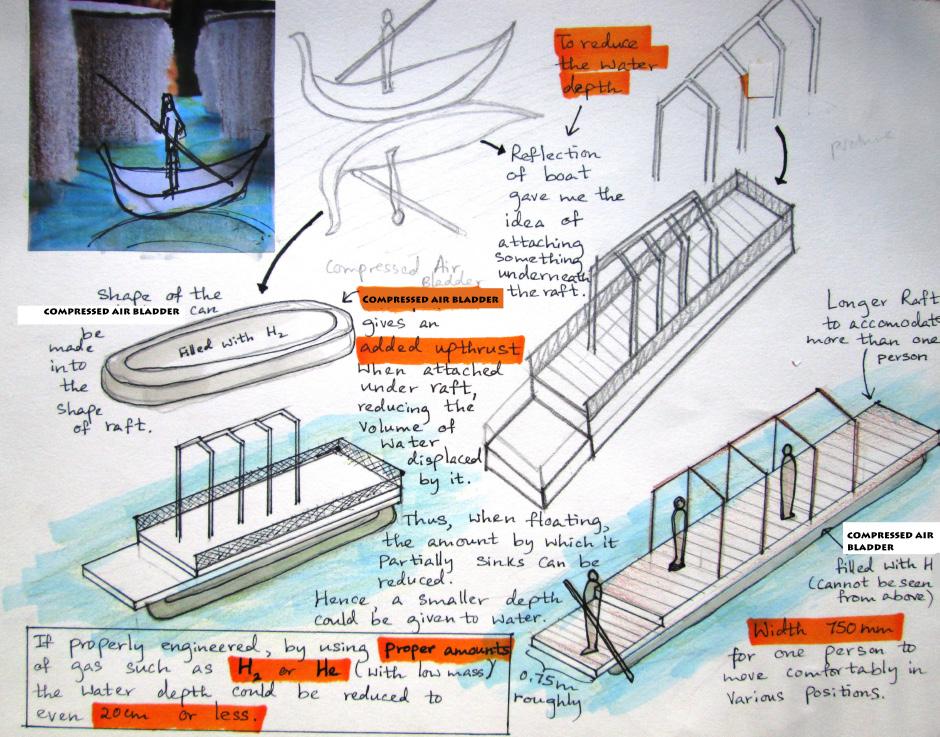 To reduce
the water
depth
Reflection
of boat
gave me the
idea of
attaching
something
underneath
the raft.
Compressed Air
Bladder
shape of the
COMPRESSED AIR BLADDER can
be
made
into
the
shape
of raft.
Filled with H2
COMPRESSED AIR BLADDER
gives an
added upthrust
when attached
under raft,
reducing the
volume of
water
displaced
by it.
Thus, when floating,
the amount by which it
partially sinks can be
reduced.
Hence, a smaller depth
could be given to water.
Longer Raft
to accomodate
more than one
person
COMPRESSED AIR
BLADDER
filled with H
(Cannot be seen
from above)
Width 750mm
for one person to
move comfortably in
various positions.
0.75m
roughly
If properly engineered, by using proper amounts
of gas such as H2 or He (with low mass)
the water depth could be reduced to
even 20cm or less.